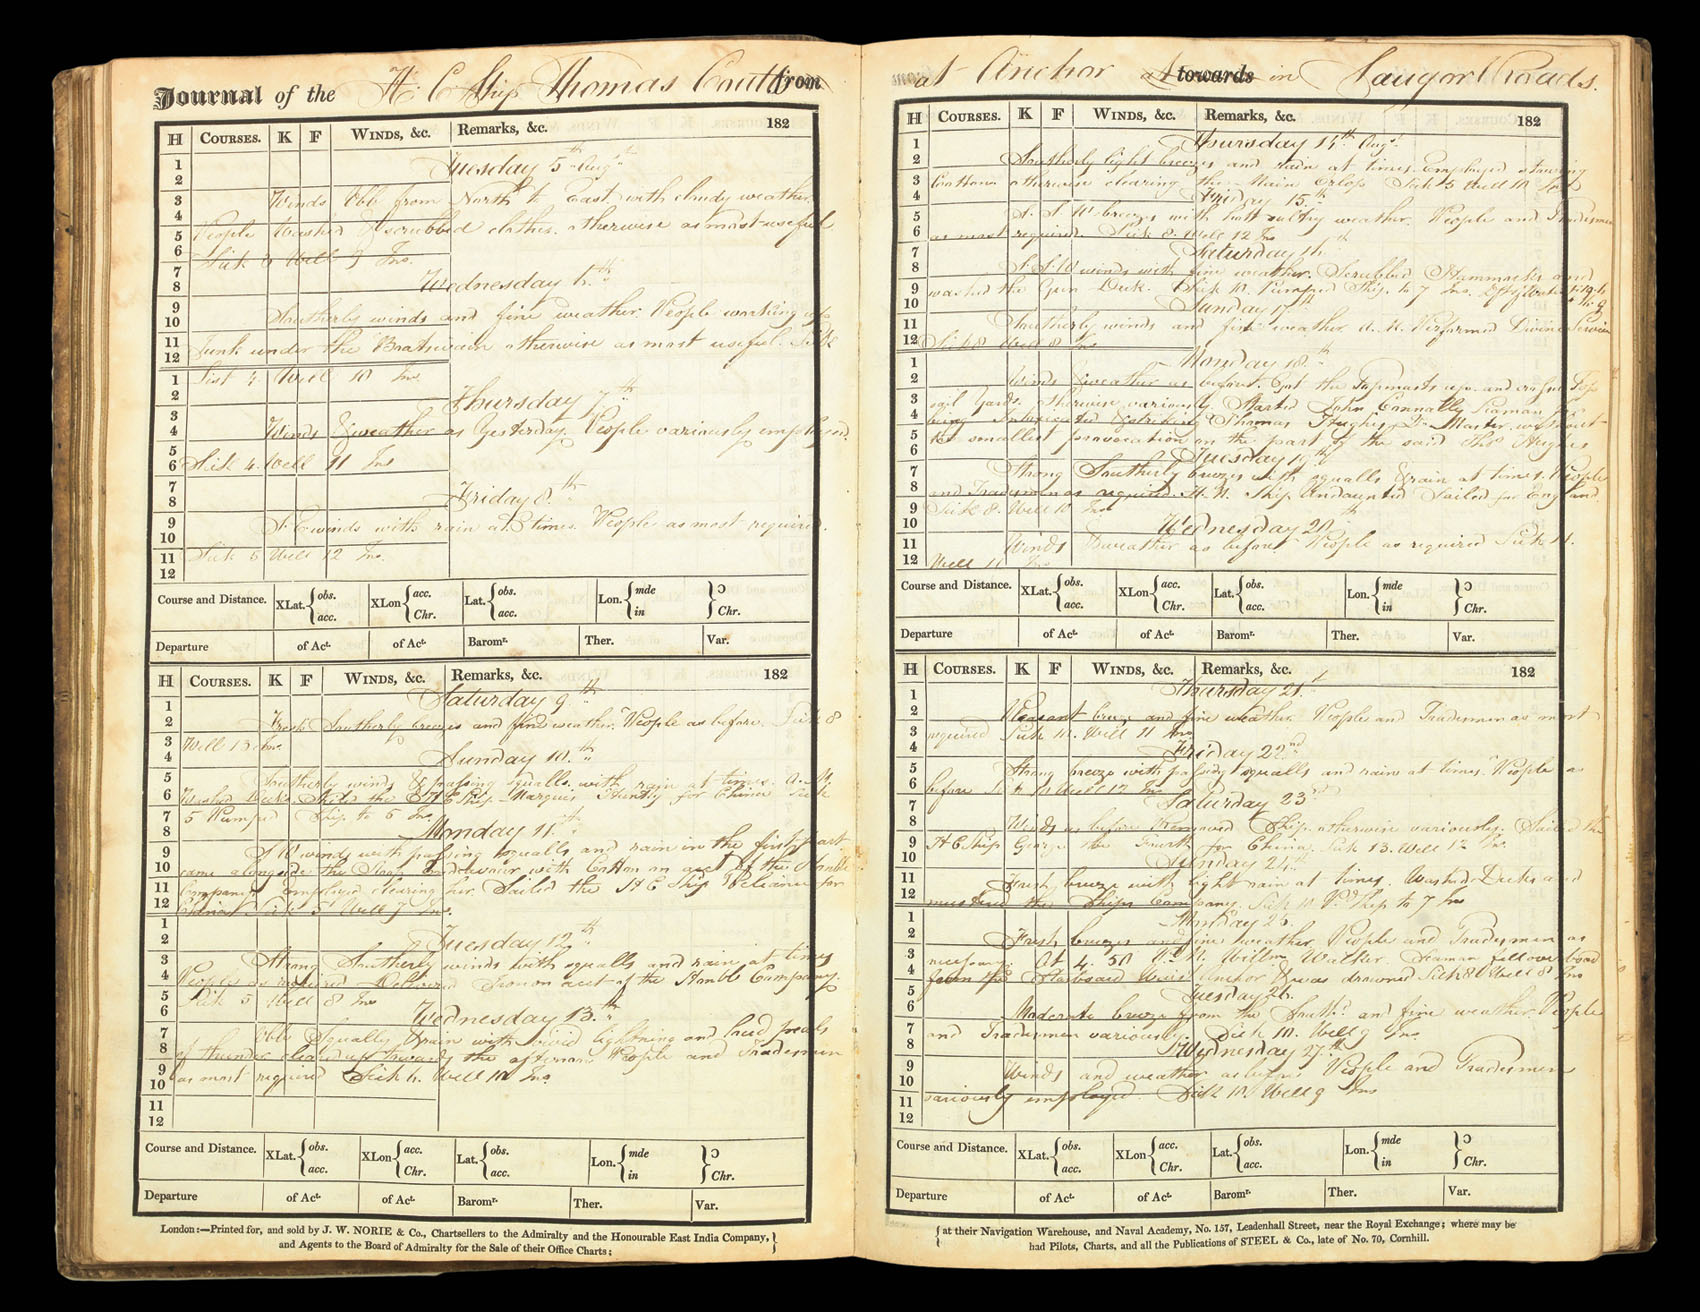 Journal of the H. C. Ship Thomas Coutts from
H COURSES. K F WINDS, &c. Remarks, &c. 182
Tuesday 5th Augst
Winds Vble from North to East with cloudy weather.
People Washed & scrubbed clothes. otherwise as most useful
Sick Well 9 Ins.
Wednesday 6th
Southerly winds and fine weather. People working up
Junk under the Boatswain otherwise as most useful. Sick
List 4. Well 10 Ins
Thursday 7th
Winds & weather as Yesterday. People variously employed.
Sick 4. Well 11 Ins
Friday 8th
S. E winds with rain at times. People as most required.
Sick 5 Well 12 Ins.
1
2
3
4
5
6
7
8
9
10
11
12
1
2
3
4
5
6
7
8
9
10
11
12
Course and Distance. XLat. { obs. acc. XLon { acc. Chr. Lat. { obs. acc. Lon. { mde in } Ɔ Chr.
Departure of Act. of Act. Baromr. Ther. Var.
H COURSES. K F WINDS, &c. Remarks, &c. 182
Saturday 9th
Fresh Southerly breezes and fine weather. People as before. Sick 8
Well 13 Ins.
Sunday 10th
Southerly winds & passing squalls with rain at times. A. M.
Washed Decks. Sailed the H C Ship Marquis Huntly for China Sick
5 Pumped Ship to 6 Ins.
Monday 11th
S W winds with passing squalls and rain in the first part
came alongside the Sloop Endeavour with Cotton on acct of the Honble
Company. Employed clearing her. Sailed the H C Ship Reliance for
China. Sick 5 Well 7 Ins.
Tuesday 12th
Strong Southerly winds with squalls and rain at times
People as required Delivered Iron on acct of the Honble Company.
Sick 5 Well 8 Ins
Wednesday 13th
Vble Squally & rain with vivid lightning and loud peals
of thunder cleared up towards the afternoon People and Tradesmen
as most required Sick 6. Well 10 Ins
1
2
3
4
5
6
7
8
9
10
11
12
1
2
3
4
5
6
7
8
9
10
11
12
Course and Distance. XLat. { obs. acc. XLon { acc. Chr. Lat. { obs. acc. Lon. { mde in } Ɔ Chr.
Departure of Act. of Act. Baromr. Ther. Var.
London:—Printed for, and sold by J. W. NORIE & Co., Chartsellers to the Admiralty and the Honourable East India Company, }
and Agents to the Board of Admiralty for the Sale of their Office Charts;
at Anchor towards in Saugor Roads.
H COURSES. K F WINDS, &c. Remarks, &c. 182
Thursday 14th Augt
Southerly light breezes and rain at times. Employed stowing
Cotton otherwise clearing the Main Orlop Sick 5 Well 10 Ins
Friday 15th
S. S W breezes with hott sultry weather. People and Tradesmen
as most required. Sick 8. Well 12 Ins
Saturday 16th
S. S. W winds with fine weather. Scrubbed Hammocks and
washed the Gun Deck. Sick 10. Pumped Ship to 7 Ins.
Sunday 17th
Southerly winds and fine weather A. M. Performed Divine Service
Sick 8 Well 8 Ins
Monday 18th
Winds & weather as before. Got the Topmasts up. and crossed Top
sail Yards. otherwise variously Started John Connally Seaman for
being Intoxicated & striking Thomas Hughes Dr Master. without
the smallest provocation on the part of the said Thos Hughes
Tuesday 19th
Strong Southerly breezes with squalls & rain at times. People
and Tradesmen as required. H. M. Ship Undaunted Sailed for England
Sick 8. Well 10 Ins
Wednesday 20th
Winds & weather as before People as required Sick 11.
Well 11 Ins
1
2
3
4
5
6
7
8
9
10
11
12
1
2
3
4
5
6
7
8
9
10
11
12
Course and Distance. XLat. { obs. acc. XLon { acc. Chr. Lat. { obs. acc. Lon. { mde in } Ɔ Chr.
Departure of Act. of Act. Baromr. Ther. Var.
H COURSES. K F WINDS, &c. Remarks, &c. 182
Thursday 21st
Pleasant breeze and fine weather. People and Tradesmen as most
required Sick 10. Well 11 Ins
Friday 22nd
Strong breeze with passing squalls and rain at times. People as
before Sick 10 Well 12 Ins
Saturday 23rd
Winds as before Removed Ship. otherwise variously. Sailed the
H C Ship George the Fourth for China. Sick 13. Well 12 Ins.
Sunday 24th
Fresh breeze with light rain at times. Washed Decks and
mustered the Ships Company. Sick 10 Pd Ship to 7 Ins
Monday 25.
Fresh breezes and fine weather People and Tradesmen as
necessary. At 4. 50 P. M. Willm Walker. Seaman fell overboard
from the Starboard Anchor & was drowned Sick 8 Well 8 Ins
Tuesday 26.
Moderate breeze from the Southd and fine weather. People
and Tradesmen variously. Sick 10. Well 9 Ins
Wednesday 27th
Winds and weather as before People and Tradesmen
variously employed. Sick 10. Well 9 Ins
1
2
3
4
5
6
7
8
9
10
11
12
1
2
3
4
5
6
7
8
9
10
11
12
Course and Distance. XLat. { obs. acc. XLon { acc. Chr. Lat. { obs. acc. Lon. { mde in } Ɔ Chr.
Departure of Act. of Act. Baromr. Ther. Var.
{ at their Navigation Warehouse, and Naval Academy, No. 157, Leadenhall Street, near the Royal Exchange; where may be
had Pilots, Charts, and all the Publications of STEEL & Co., late of No. 70, Cornhill.